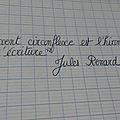 cent circonflexe est l'hiron
écriture".
Jules Renard